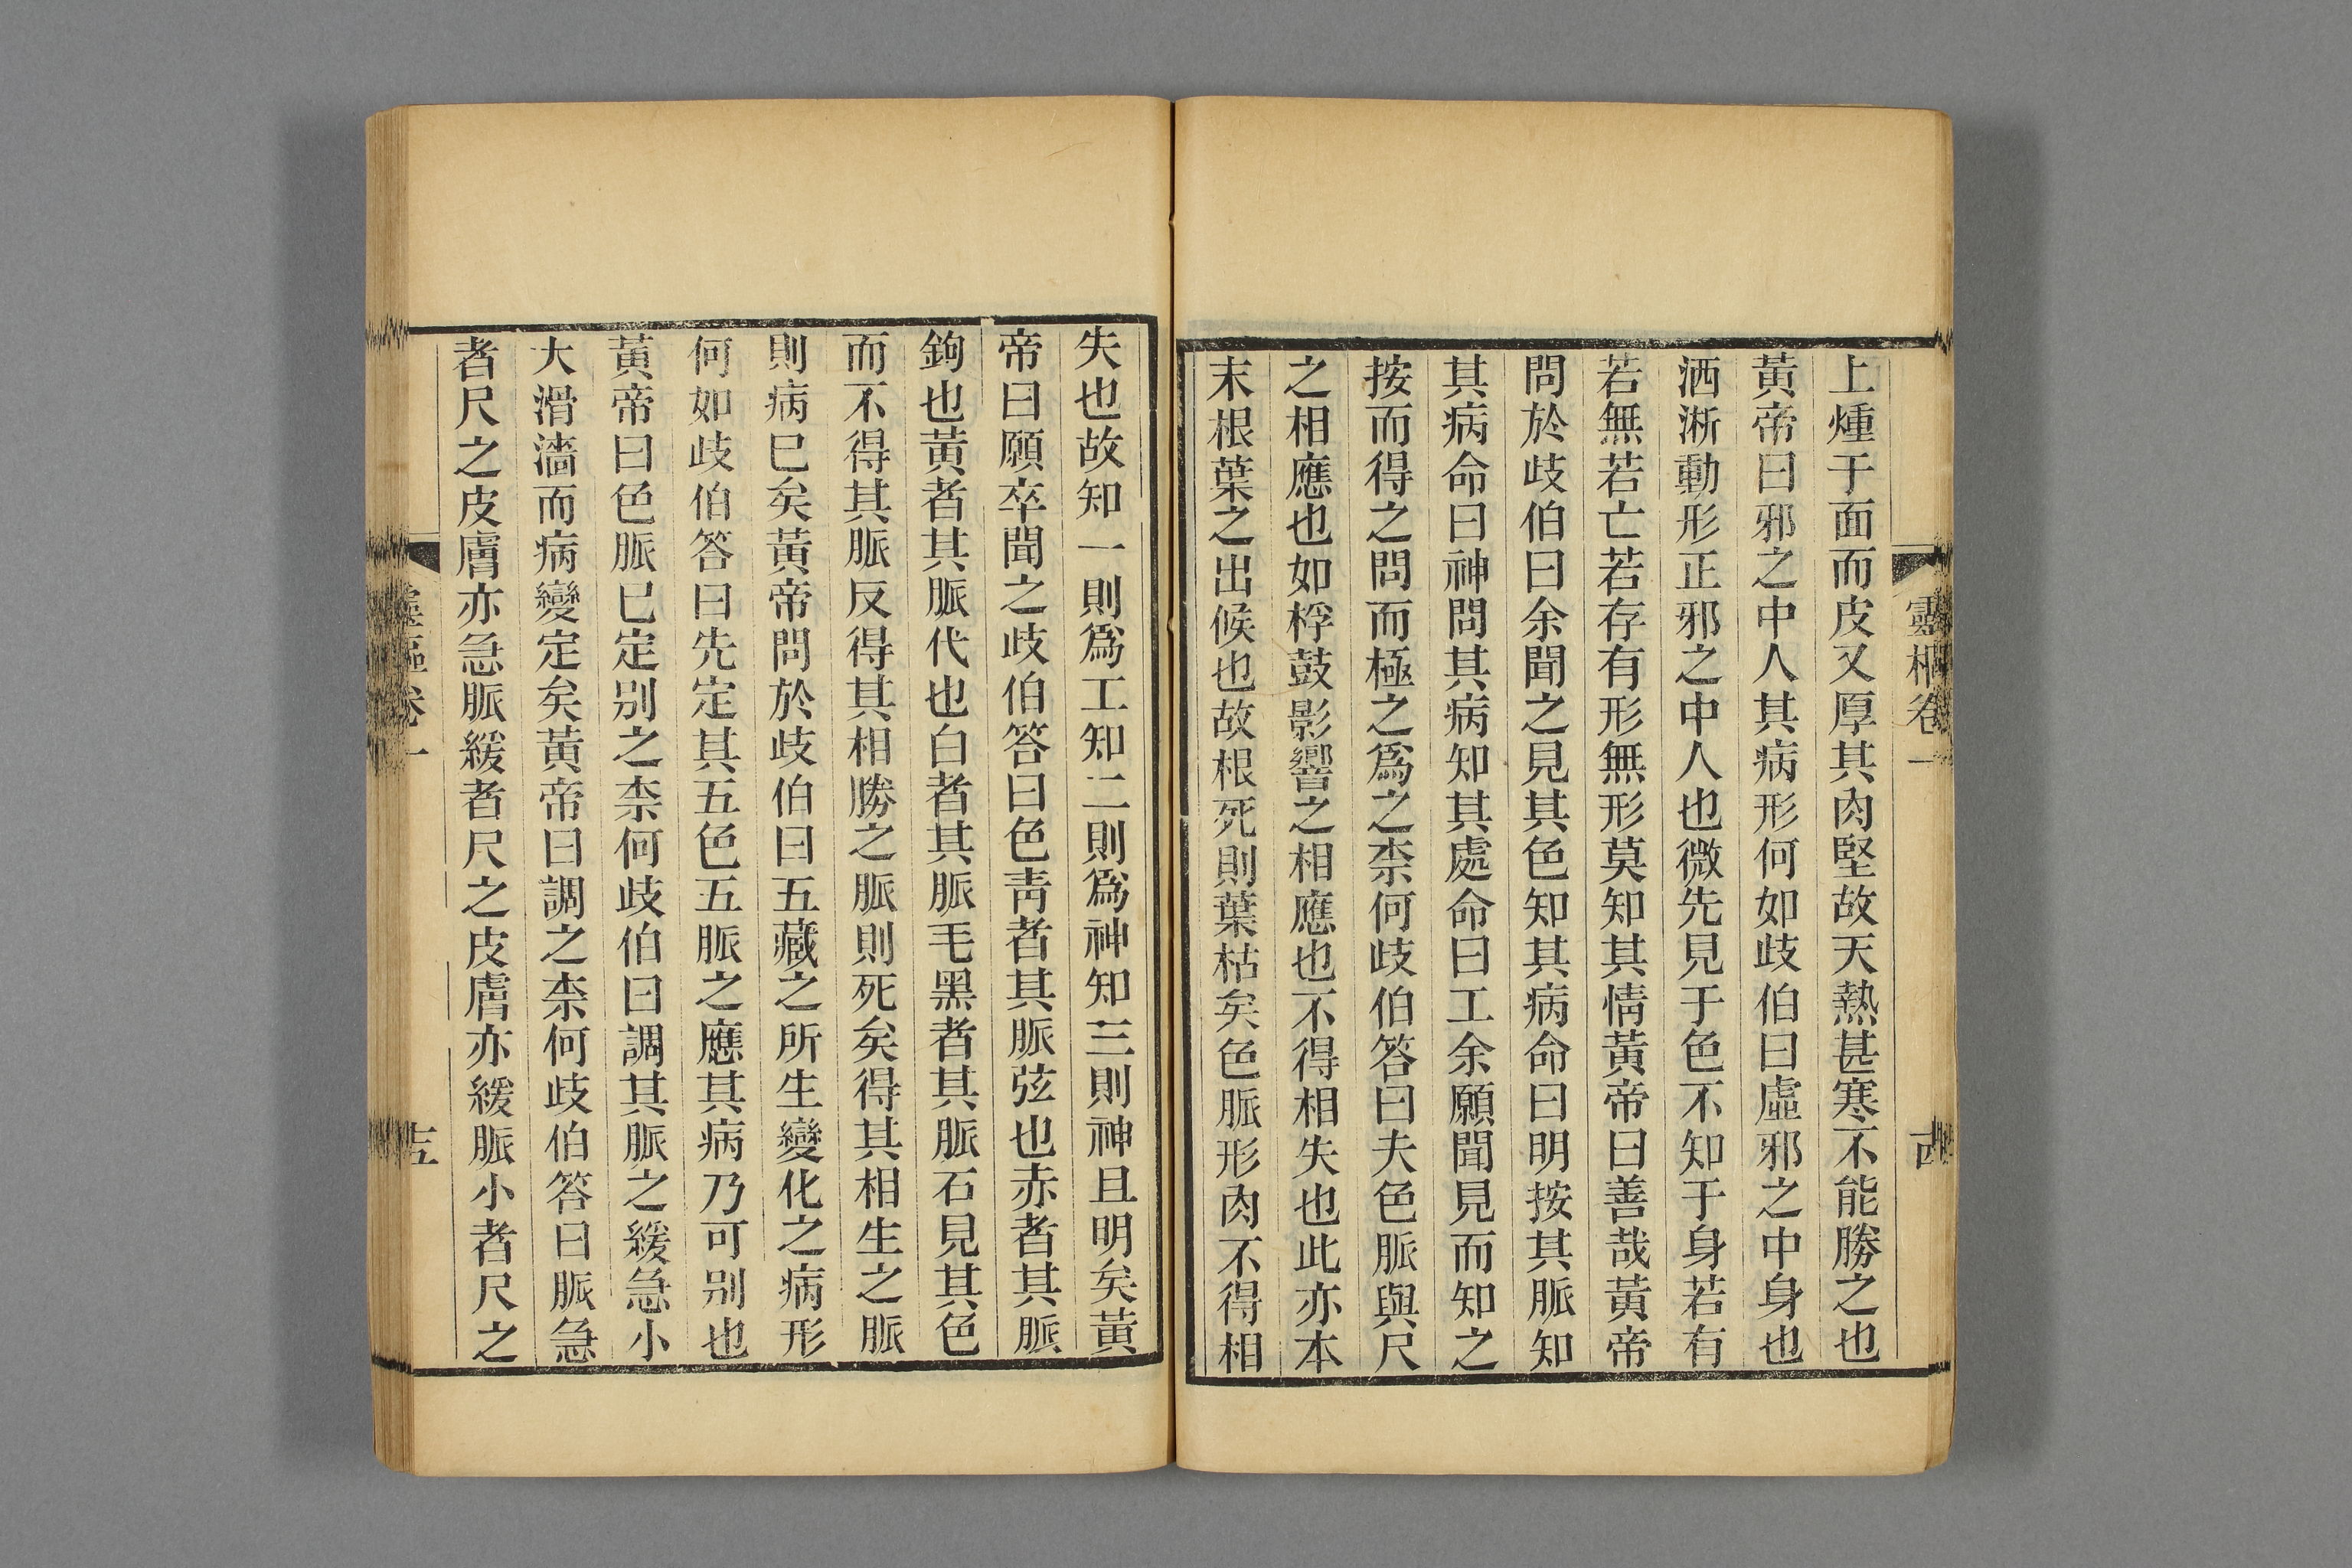 靈樞卷一
上煄于面而皮又厚其肉堅故天熱甚寒不能勝之也
黃帝曰邪之中人其病形何如歧伯曰虛邪之中身也
洒淅動形正邪之中人也微先見于色不知于身若有
若無若亡若存有形無形莫知其情黃帝曰善哉黃帝
問於歧伯曰余聞之見其色知其病命曰明按其脈知
其病命曰神問其病知其處命曰工余願聞見而知之
按而得之問而極之爲之柰何歧伯答曰夫色脈與尺
之相應也如桴鼓影響之相應也不得相失也此亦本
末根葉之出候也故根死則葉枯矣色脈形肉不得相
失也故知一則爲工知二則爲神知三則神且明矣黃
帝曰願卒聞之歧伯答曰色靑者其脈弦也赤者其脈
鉤也黃者其脈代也白者其脈毛黑者其脈石見其色
而不得其脈反得其相勝之脈則死矣得其相生之脈
則病巳矣黃帝問於歧伯曰五藏之所生變化之病形
何如歧伯答曰先定其五色五脈之應其病乃可别也
黃帝曰色脈巳定别之柰何歧伯曰調其脈之緩急小
大滑濇而病變定矣黃帝曰調之柰何歧伯答曰脈急
者尺之皮膚亦急脈緩者尺之皮膚亦緩脈小者尺之
靈樞卷一